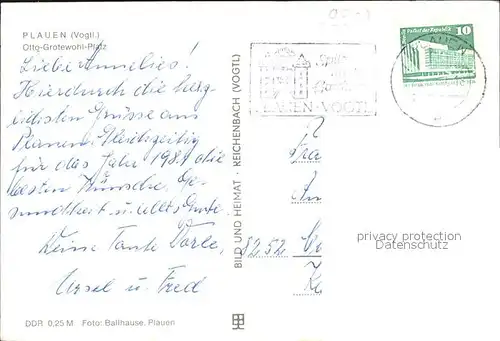 PLAUEN (Vogtl.)
Otto-Grotewohl-Platz
Liebe Annelies!
Hierdurch die herz-
lichsten Grüsse aus
Plauen. Gleichzeitig
für das Jahr 1981 die
besten Wünsche, Ge-
sundheit u. alles Gute
Deine Tante Dorle,
Ursel u. Fred
DDR 0,25 M Foto: Ballhause, Plauen
BILD UND HEIMAT · REICHENBACH (VOGTL)
PLAUEN · VOGTL
10
Palast der Republik
Fra
An
8252
privacy protection
Datenschutz